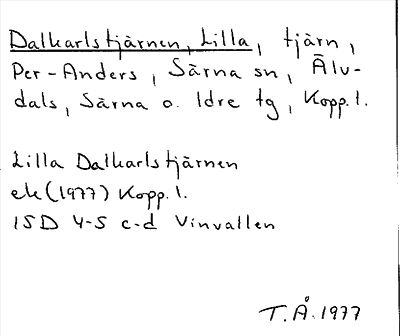 Dalkarlstjärnen, Lilla, tjärn,
Per-Anders, Särna sn, Älv-
dals, Särna o. Idre tg, Kopp. l.
Lilla Dalkarlstjärnen
ek (1977) Kopp. l.
15D 4-5 c-d Vinvallen
T.Å. 1977